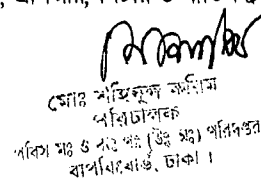 মোঃ শহিদুল করিম
পরিচালক
পবিস মঃ ও ব্যঃ পঃ (উঃ মঃ) পরিদপ্তর
বাপবিবোর্ড, ঢাকা ।